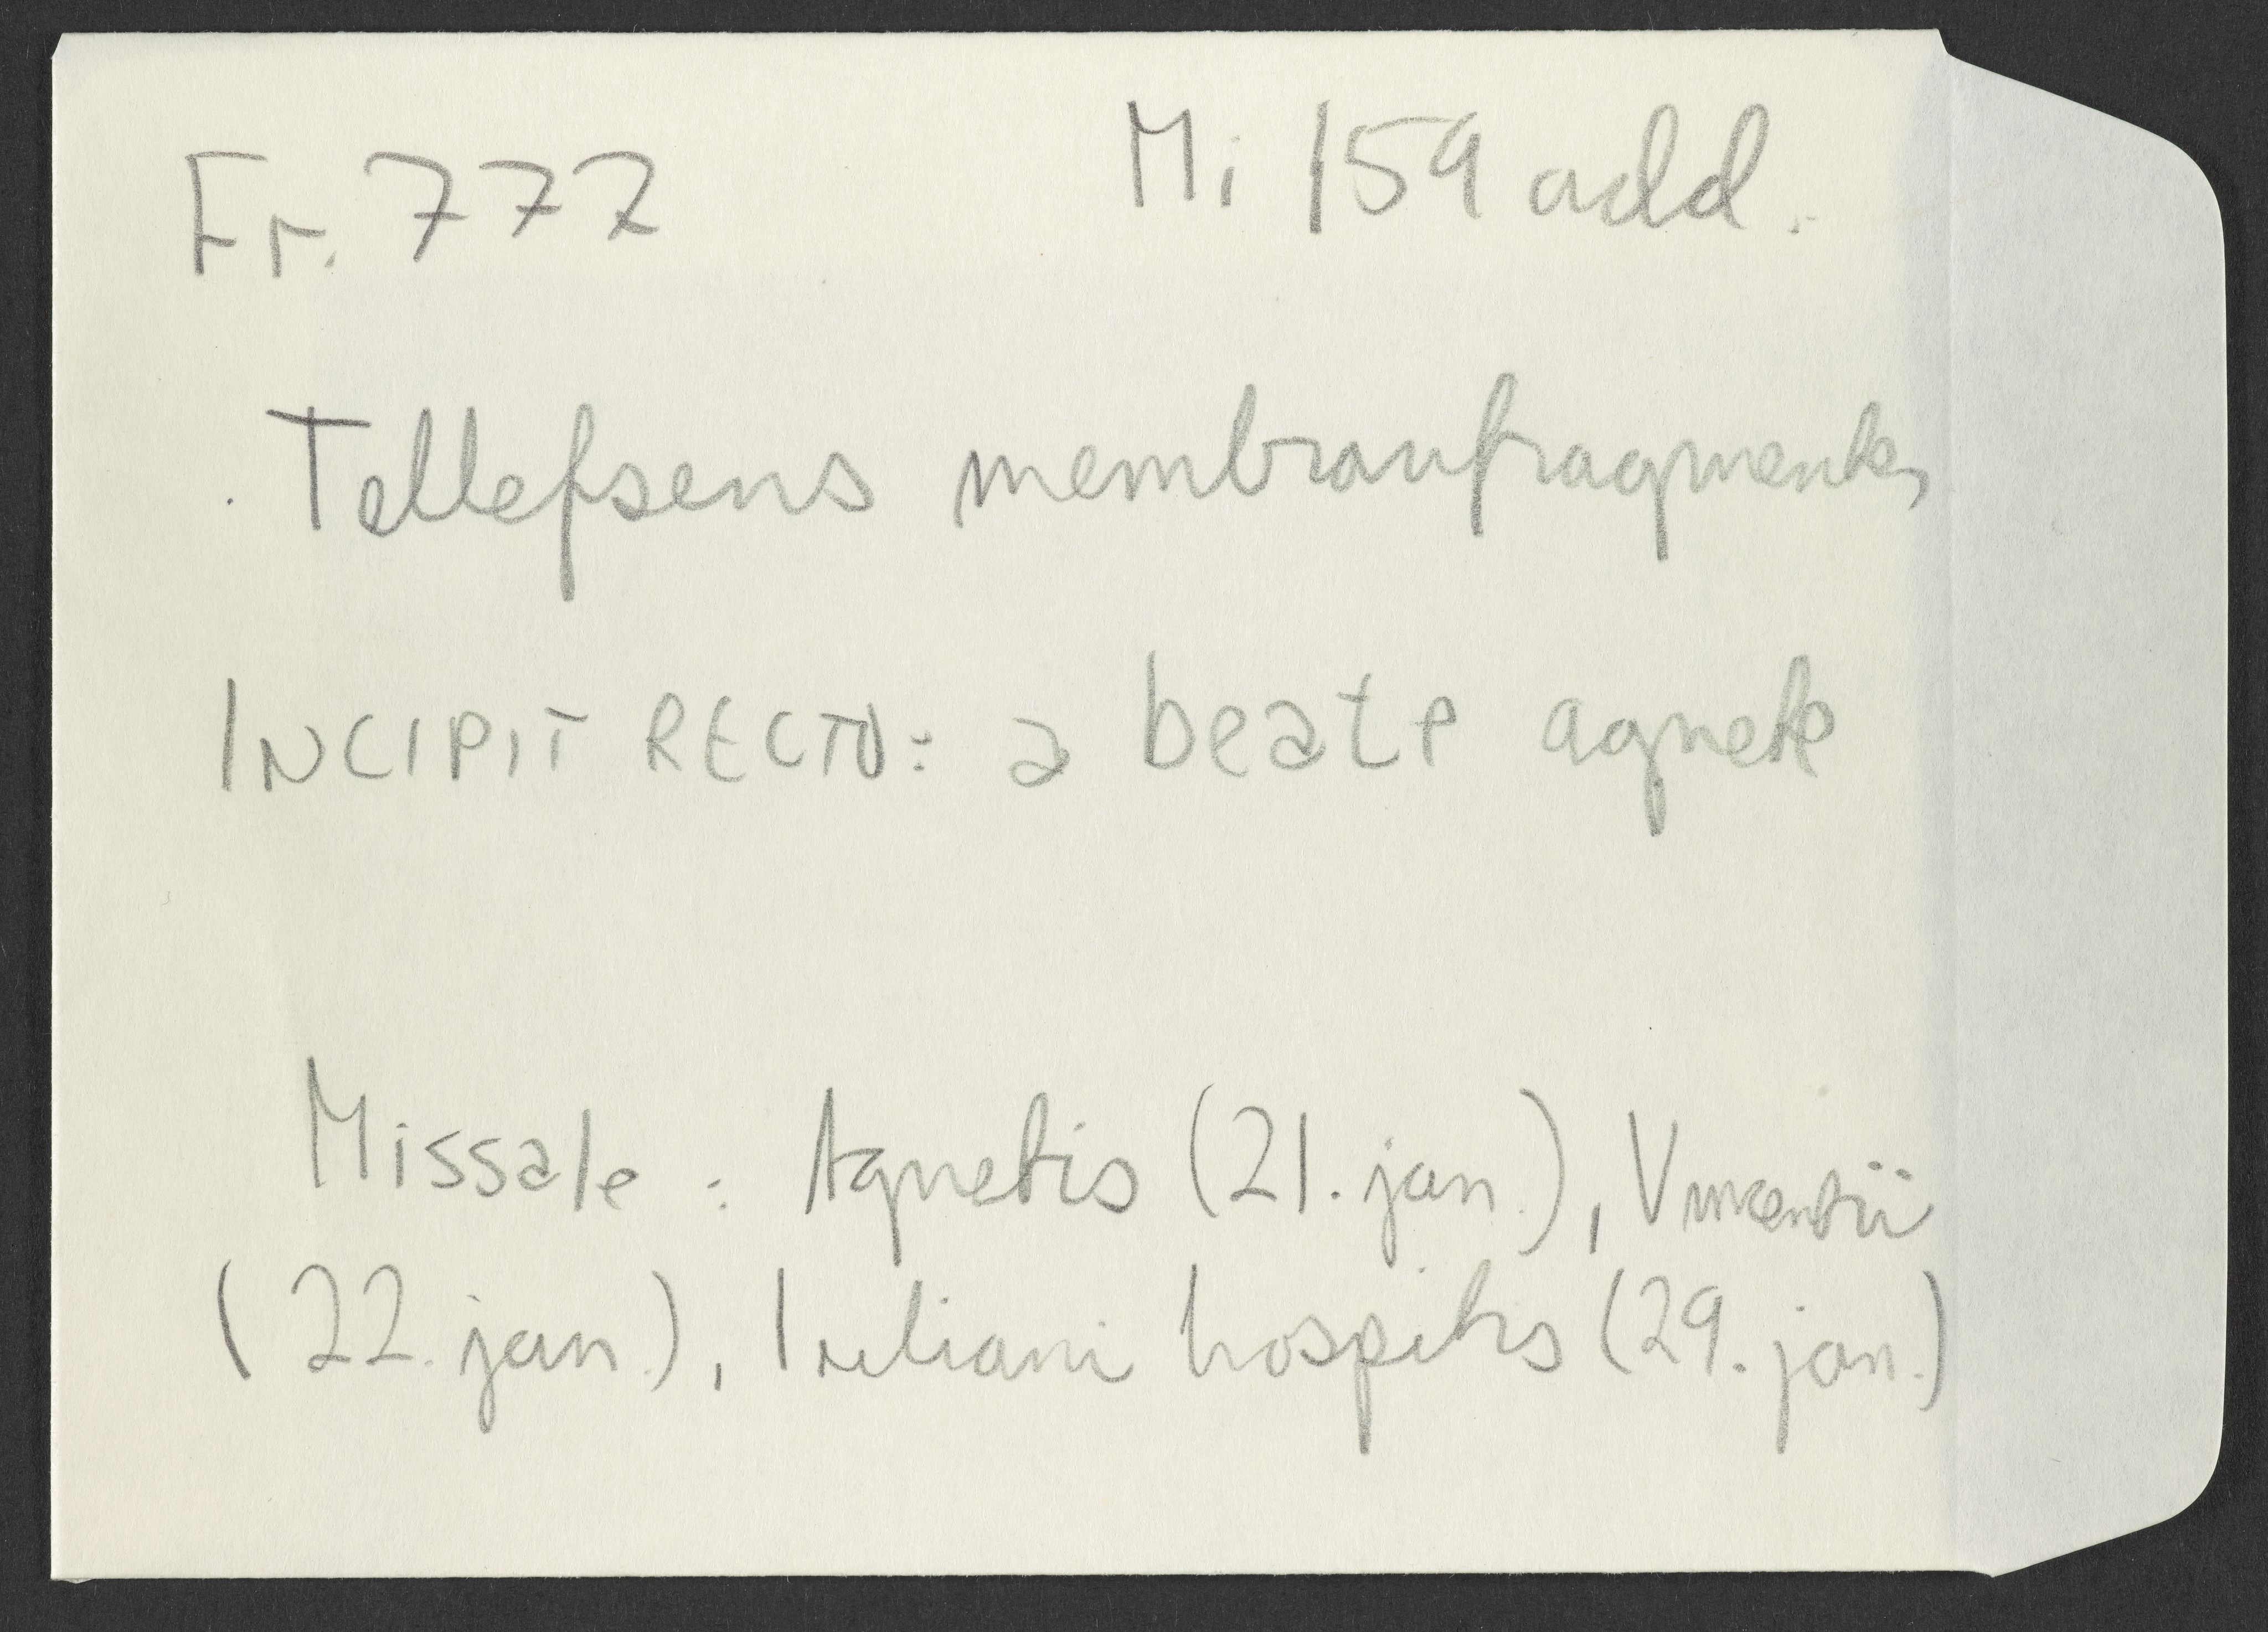 Fr. 772 Mi 159 add.
Tellefsens membranfragmenter
INCIPIT RECTO: a beate agnete
Missale: Agnetis (21. jan.), Vincentii
(22. jan.), Iuliani hospitis (29. jan.)